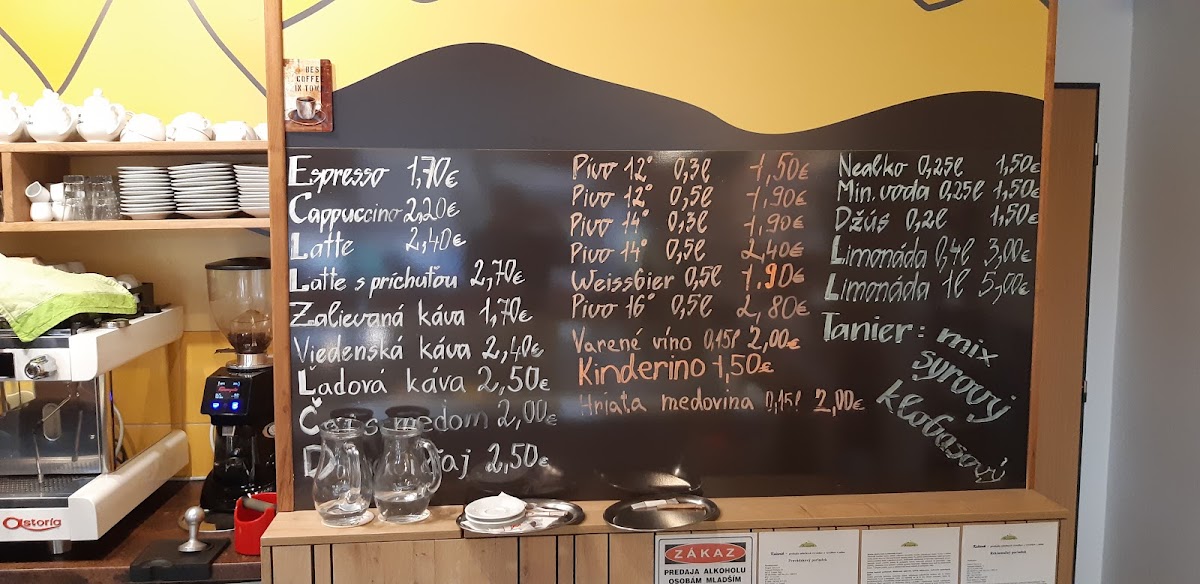 BEST
COFFEE
IN TOWN
Espresso 1,70€
Cappuccino 2,20€
Latte 2,40€
Latte s príchuťou 2,70€
Zalievaná káva 1,70€
Viedenská káva 2,40€
Ľadová káva 2,50€
Čaj s medom 2,00€
čaj 2,50€
Pivo 12° 0,3l 1,50€
Pivo 12° 0,5l 1,90€
Pivo 14° 0,3l 1,90€
Pivo 14° 0,5l 2,40€
Weissbier 0,5l 1,90€
Pivo 16° 0,5l 2,80€
Varené víno 0,15l 2,00€
Kinderino 1,50€
Hriata medovina 0,15l 2,00€
Nealko 0,25l 1,50€
Min. voda 0,25l 1,50€
Džús 0,2l 1,50€
Limonáda 0,4l 3,00€
Limonáda 1l 5,00€
Tanier: mix
syrový
klobasový
astoria
ZÁKAZ
PREDAJA ALKOHOLU
OSOBÁM MLADŠÍM